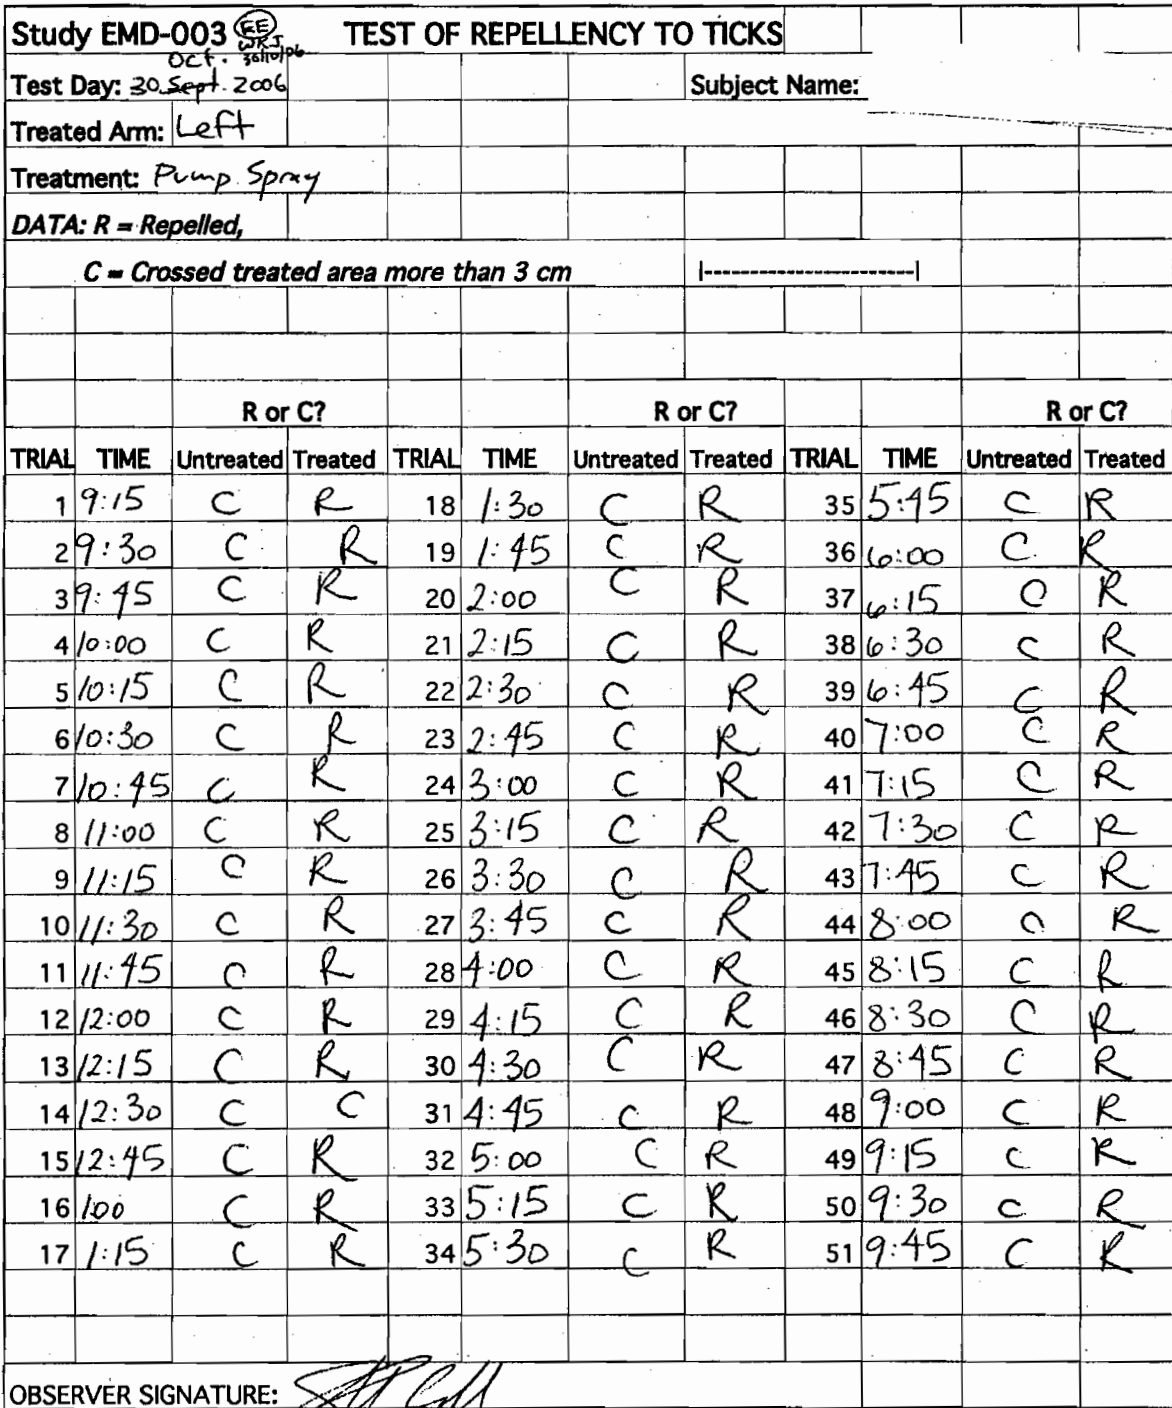 Study EMD-003 EE TEST OF REPELLENCY TO TICKS
WRJ
Oct. 30/10/06
Test Day: 30 Sept. 2006 Subject Name:
Treated Arm: Left
Treatment: Pump Spray
DATA: R = Repelled,
C = Crossed treated area more than 3 cm |-----------------------|
R or C? R or C? R or C?
TRIAL TIME Untreated Treated TRIAL TIME Untreated Treated TRIAL TIME Untreated Treated
1 9:15 C R 18 1:30 C R 35 5:45 C R
2 9:30 C R 19 1:45 C R 36 6:00 C R
3 9:45 C R 20 2:00 C R 37 6:15 C R
4 10:00 C R 21 2:15 C R 38 6:30 C R
5 10:15 C R 22 2:30 C R 39 6:45 C R
6 10:30 C R 23 2:45 C R 40 7:00 C R
7 10:45 C R 24 3:00 C R 41 7:15 C R
8 11:00 C R 25 3:15 C R 42 7:30 C R
9 11:15 C R 26 3:30 C R 43 7:45 C R
10 11:30 C R 27 3:45 C R 44 8:00 C R
11 11:45 C R 28 4:00 C R 45 8:15 C R
12 12:00 C R 29 4:15 C R 46 8:30 C R
13 12:15 C R 30 4:30 C R 47 8:45 C R
14 12:30 C C 31 4:45 C R 48 9:00 C R
15 12:45 C R 32 5:00 C R 49 9:15 C R
16 1:00 C R 33 5:15 C R 50 9:30 C R
17 1:15 C R 34 5:30 C R 51 9:45 C R
OBSERVER SIGNATURE: